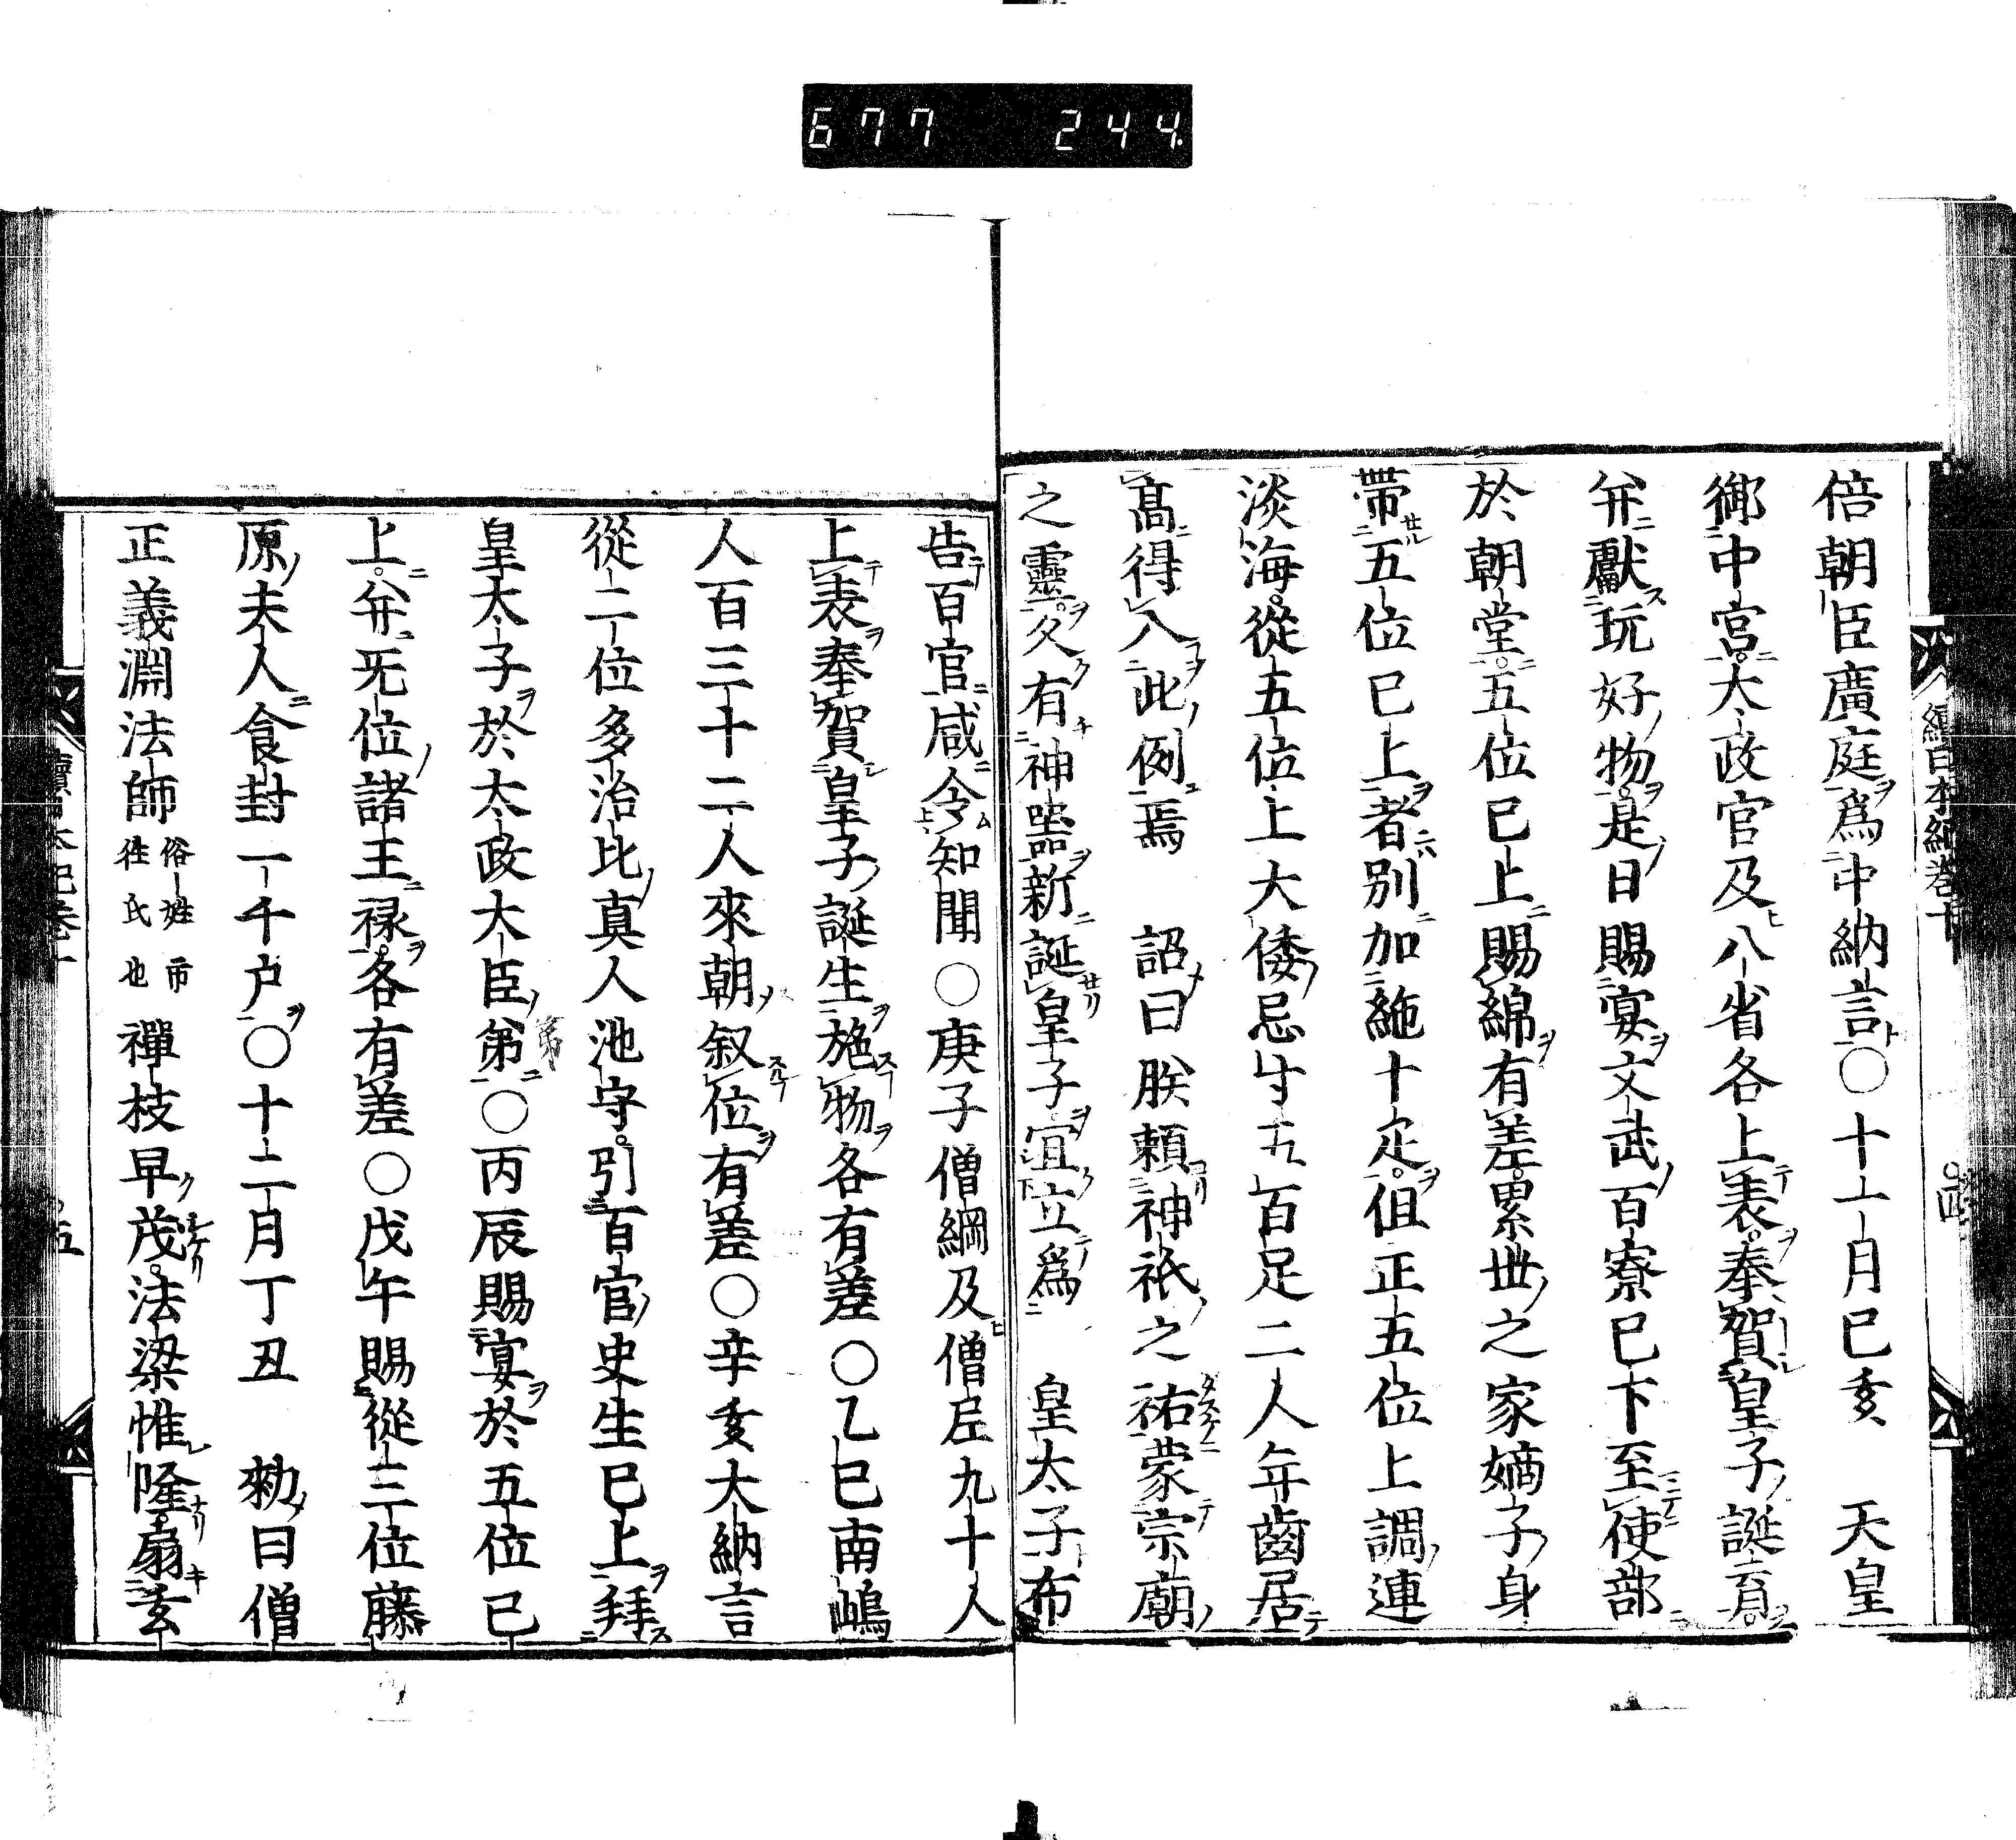 677 244
續日本紀卷十
倍朝臣廣庭爲中納言〇十一月巳亥 天皇
御中宮大政官及八省各上表奉賀皇子誕育
并獻玩好物是日賜宴文武百寮巳下至使部
於朝堂五位巳上賜綿有差累世之家嫡子身
帶五位巳上者別加絁十疋但正五位上調連
淡海從五位上大倭忌寸五百足二人年齒居
髙得入此例焉 詔曰朕頼神祇之祐蒙宗廟
之靈久有神器新誕皇子宜立爲 皇太子布
告百官咸令知聞〇庚子僧綱及僧尼九十人
上表奉賀皇子誕生施物各有差〇乙巳南嶋
人百三十二人來朝叙位有差〇辛亥大納言
從二位多治比真人池守引百官史生巳上拜
皇太子於太政大臣第〇丙辰賜宴於五位巳
上并无位諸王禄各有差〇戊午賜從三位藤
原夫人食封一千户〇十二月丁丑 勑曰僧
正義淵法師俗姓市徃氏也禪枝早茂法梁惟隆扇玄